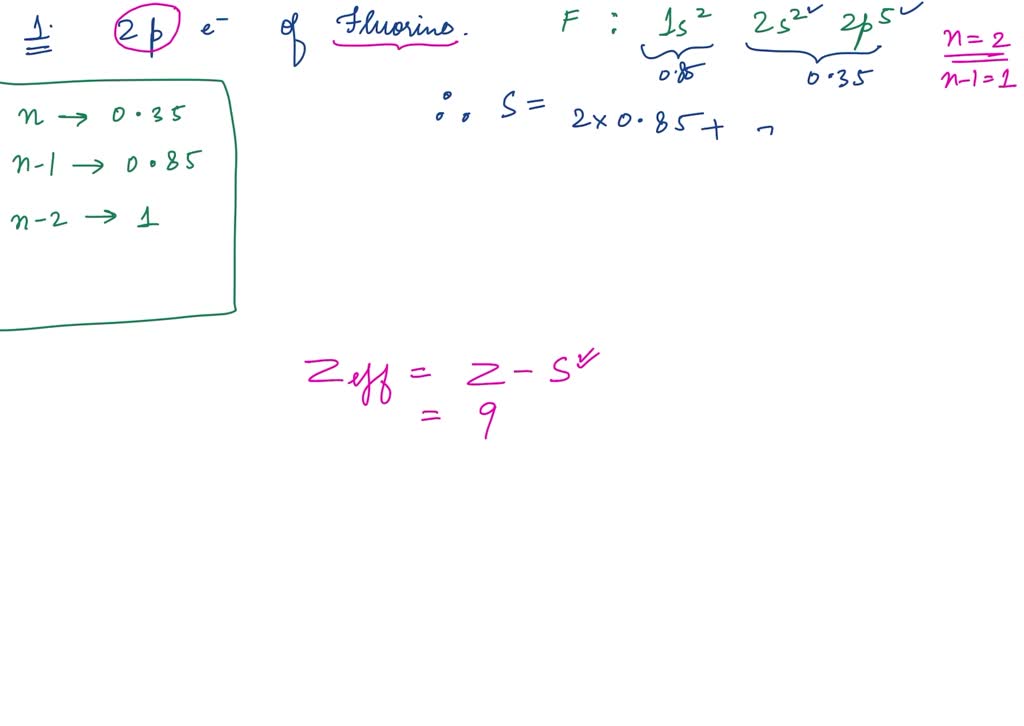 1. 2p e⁻ of Fluorine. F : 1s² 2s² 2p⁵
0.85 0.35
n = 2
n-1 = 1
n → 0.35
n-1 → 0.85
n-2 → 1
∴ S = 2 × 0.85 +
Zeff = Z - S
= 9